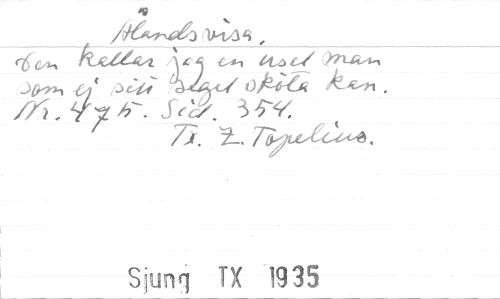 Ålandsvisa.
Den kallar jag en usel man
som ej sitt segel sköta kan.
Nr. 475. Sid. 354.
Tr. Z. Topelius.
Sjung TX 1935